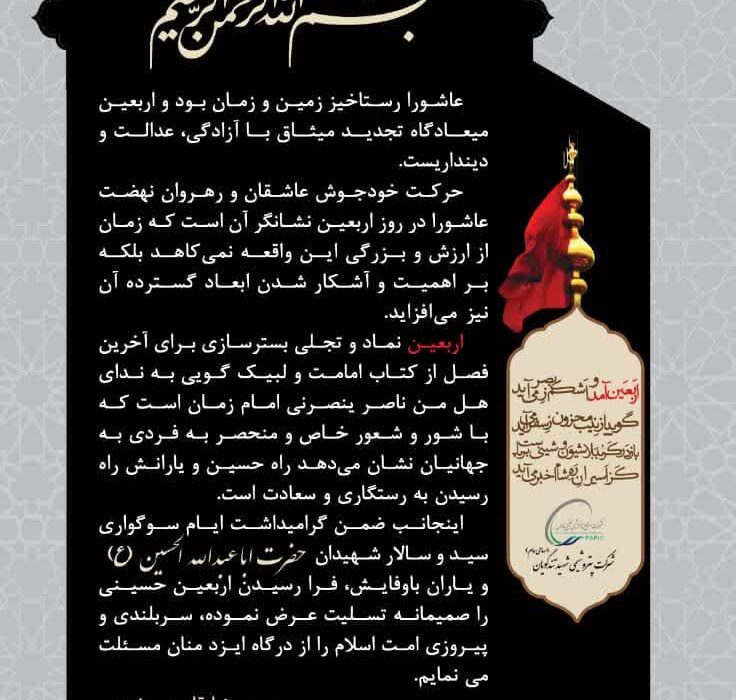 بسم الله الرحمن الرحیم
عاشورا رستاخیز زمین و زمان بود و اربعین
میعادگاه تجدید میثاق با آزادگی، عدالت و
دینداریست.
حرکت خودجوش عاشقان و رهروان نهضت
عاشورا در روز اربعین نشانگر آن است که زمان
از ارزش و بزرگی این واقعه نمی‌کاهد بلکه
بر اهمیت و آشکار شدن ابعاد گسترده آن
نیز می‌افزاید.
اربعین نماد و تجلی بسترسازی برای آخرین
فصل از کتاب امامت و لبیک گویی به ندای
هل من ناصر ینصرنی امام زمان است که
با شور و شعور خاص و منحصر به فردی به
جهانیان نشان می‌دهد راه حسین و یارانش راه
رسیدن به رستگاری و سعادت است.
اینجانب ضمن گرامیداشت ایام سوگواری
سید و سالار شهیدان حضرت اباعبدالله الحسین (ع)
و یاران باوفایش، فرا رسیدن اربعین حسینی
را صمیمانه تسلیت عرض نموده، سربلندی و
پیروزی امت اسلام را از درگاه ایزد منان مسئلت
می نمایم.
اربعین آمد و اشکم ز بصر می آید
گویا زینب محزون ز سفر می آید
باز در کرببلا شیون و شینی برپاست
کز اسیران ره شام خبر می آید
شرکت پتروشیمی شهید تندگویان